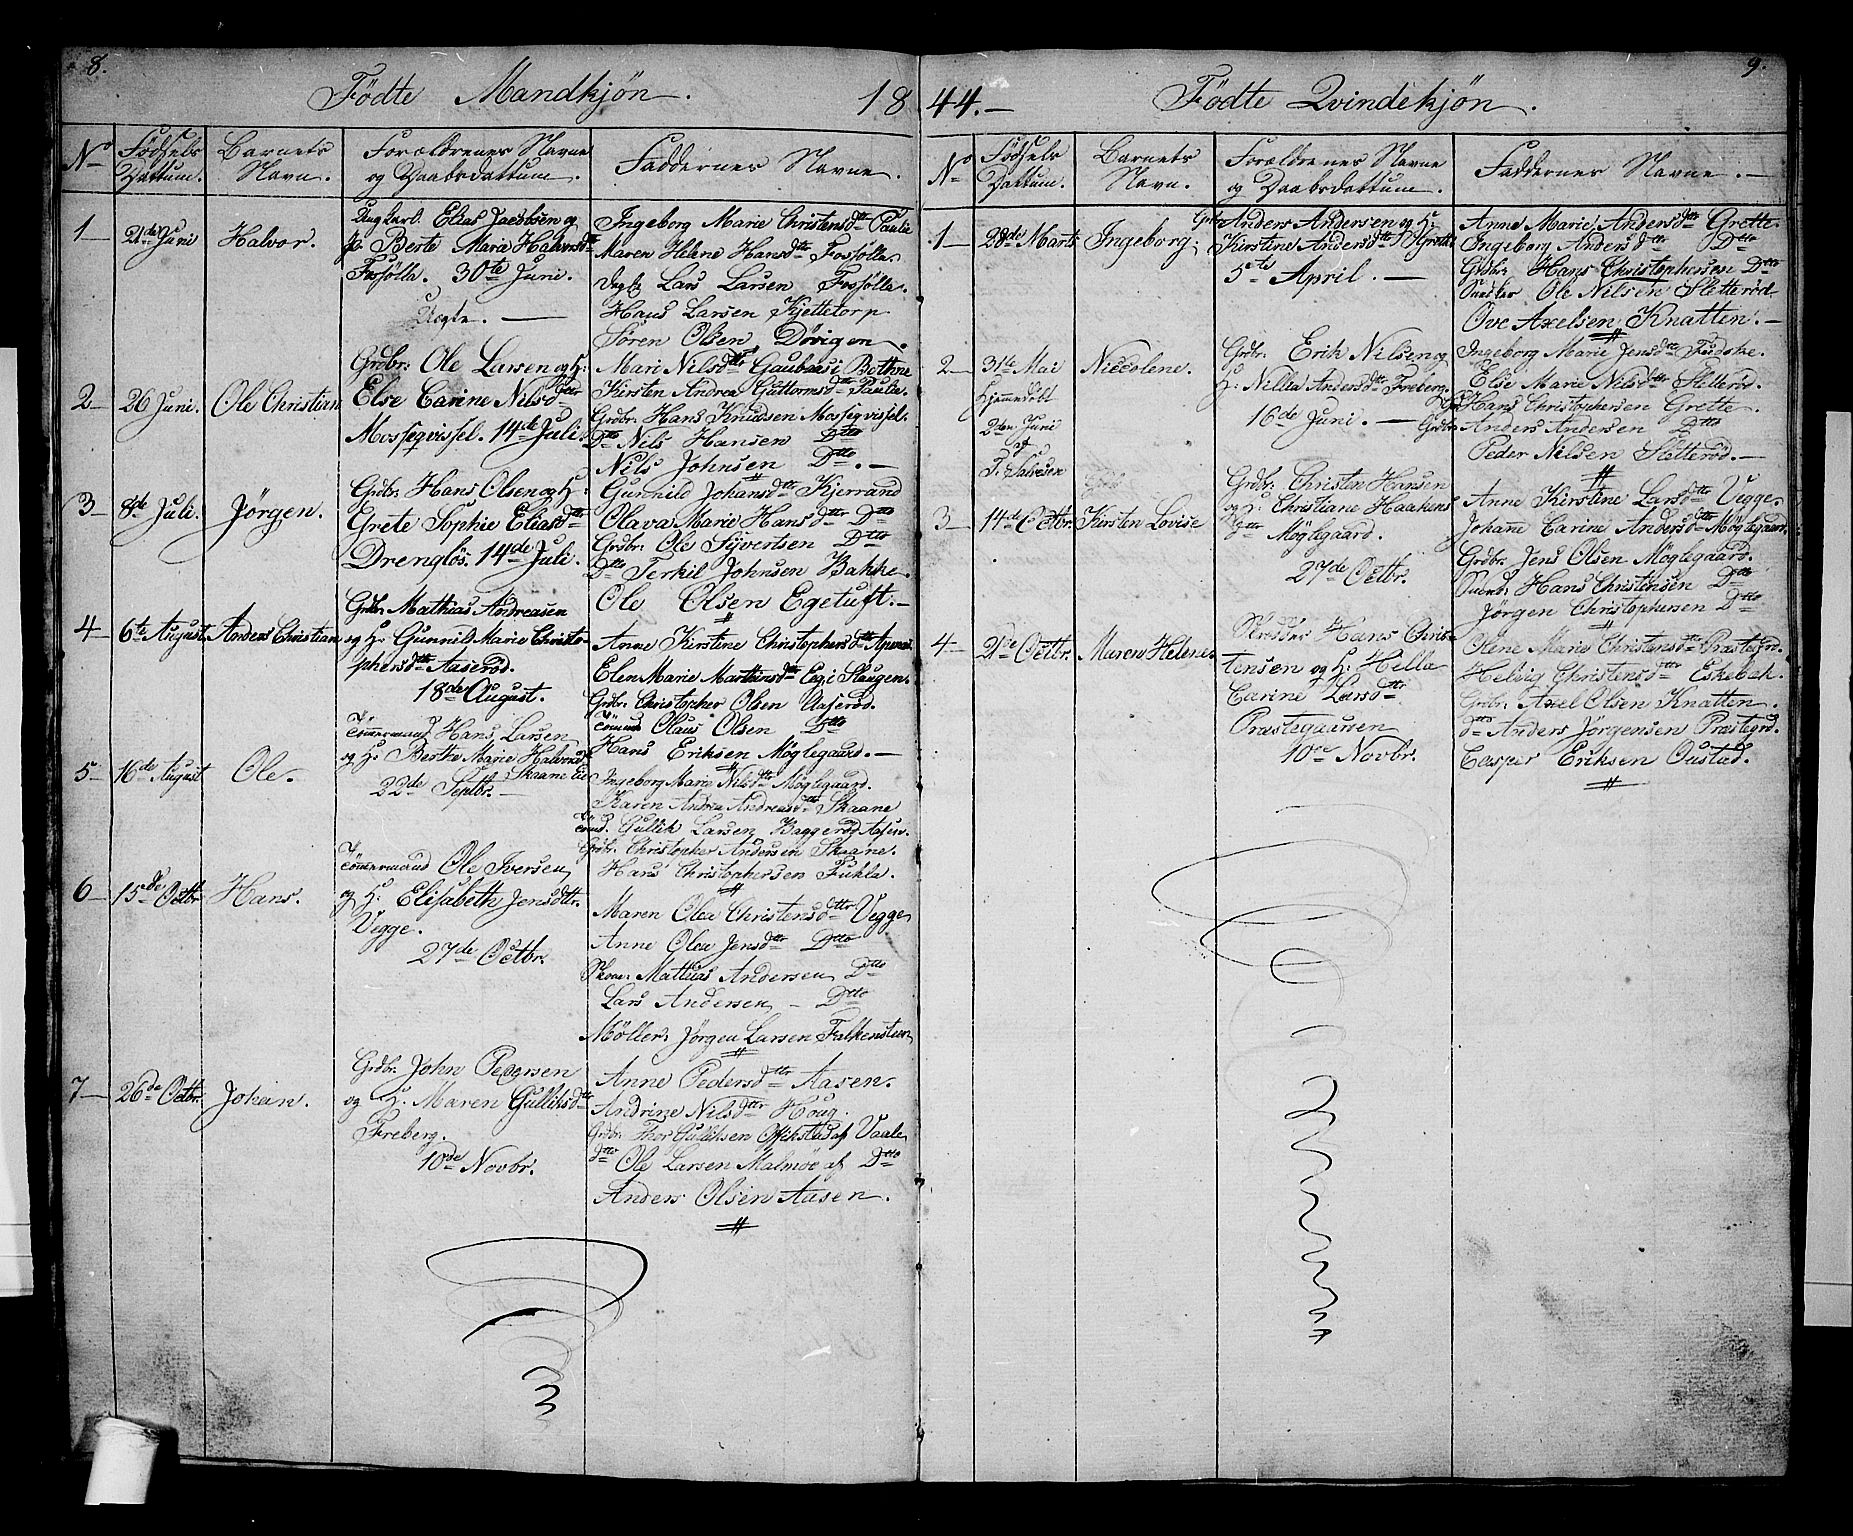 8.
Födte Mandkjön. 18
No
Födsels Dattum.
Barnets Navn.
Forældrenes Navne og Daabsdattum.
Faddernes Navne.
1
21de Juni
Halvor.
Ungkarl. Elias Jacobsen og
Berte Maria Halvorsdtr
Fosfölla. 30te Juni.
Uegte.
Ingeborg Marie Christensdtr Paulie
Maren Helene Hansdtr Fosfölla.
Lars Larsen Fosfölla.
Hans Larsen Kjettetorp
Sören Olsen Dövigen.
2
26 Juni.
Ole Christian
Grdbr: Ole Larsen og H:
Else Carine Nilsdtr
Mossegvissel. 14de Juli.
Mari Nilsdtr Gaubaui Bothne
Kirsten Andrea Guttormsdtr Paulia.
Grdbr: Hans Knudsen Mossegvissel.
Do Nils Hansen Dtto
Nils Johnsen Dtto.
3
8de Juli.
Jörgen.
Grdbr: Hans Olsen og H:
Grete Sophie Eliasdtr
Drenglös. 14de Juli.
Gunnild Johansdtr Kjerrand
Olava Marie Hansdtr Dtto
Grdbr: Ole Syvertsen Dtto
Dtto Terkil Johnsen Bakke.
Ole Olsen Egetuft.
4
6te August
Anders Christian
Grdbr: Mathias Andreasen
og H: Gunnild Marie Christo-
phersdtr Aaseröd.
18de August.
Anne Kirstine Christophersdtr
Elen Marie Martinsdtr Eeg i Slaugen.
Grdbr: Christopher Olsen Aaseröd.
Olaus Olsen Dtto
Hans Eriksen Möglegaard.
5
16de August
Ole.
Tömmermand Hans Larsen
og H: Berthe Marie Halvorsdtr
Skaane Eie
22de Septbr.
Ingeborg Marie Nilsdtr Möglegaard.
Karen Andrea Andreasdtr Skaane
Gullik Larsen Baggeröd Aasen.
Grdbr: Christopher Andersen Skaane.
Hans Christophersen Fukla.
6
15de Octbr
Hans.
Tömmermand Ole Iversen
og H: Elisabeth Jensdttr.
Vegge.
27de Octbr.
Maren Olea Christensdtr Vegge
Anne Olea Jensdtr Dtto
Mathias Andersen Dtto
Lars Andersen Dtto
Möller: Jörgen Larsen Falkensteen
7
26de Octbr.
Johan.
Grdbr: John Pedersen
og H: Maren Gulliksdtr
Freberg.
10de Novbr.
Anne Pedersdtr Aasen.
Andrine Nilsdtr Houg.
Grdbr: Thor Gulliksen Offikstad af Vaale
dtto Ole Larsen Malmöe af Dtto
Anders Olsen Aasen.
9.
44. Födte Qvindekjön.
No
Födsels Dattum.
Barnets Navn.
Forældrenes Navne og Daabsdattum.
Faddernes Navne.
1
28de Marts
Ingeborg.
Grdbr: Anders Andersen og H:
Kirstine Andersdtr Grette
5te April.
Anne Marie Andersdtr Grette
Ingeborg Andersdtr Dtto
Grdbr: Hans Christophersen Dtto
Snedker Ole Nilsen Sletteröd
Ove Axelsen Knatten.
2
31te Mai
Hjemmedöbt
2den Juni
af
T. Salvesen
Niccolene.
Grdbr: Erik Nilsen og
H: Nillea Andersdtr Freberg.
16de Juni.
Ingeborg Marie Jensdtr
Else Marie Nilsdtr Sletteröd.
Hans Christophersen Grette.
Grdbr: Anders Andersen Dtto
Peder Nilsen Sletteröd.
3
14de Octbr.
Kirsten Lovise
Grdbr: Christen Hansen
og H: Christiane Haakens
dtr Möglegaard.
27de Octbr.
Anne Kirstine Larsdtr Vegge.
Johane Carine Andersdtr Möglegaard.
Grdbr: Jens Olsen Möglegaard.
Hans Christensen Dtto
Jörgen Christophersen Dtto
4
21de Octbr.
Maren Helene.
Skredder Hans Chris-
tensen og H: Hella
Carine Larsdtr
Præstegaarden
10de Novbr.
Olene Marie Christensdtr Præstegrd.
Helvig Christensdtr Eskebek.
Grdbr: Axel Olsen Knatten.
dtto Anders Jörgensen Præstegrd.
Casper Eriksen Oustad.